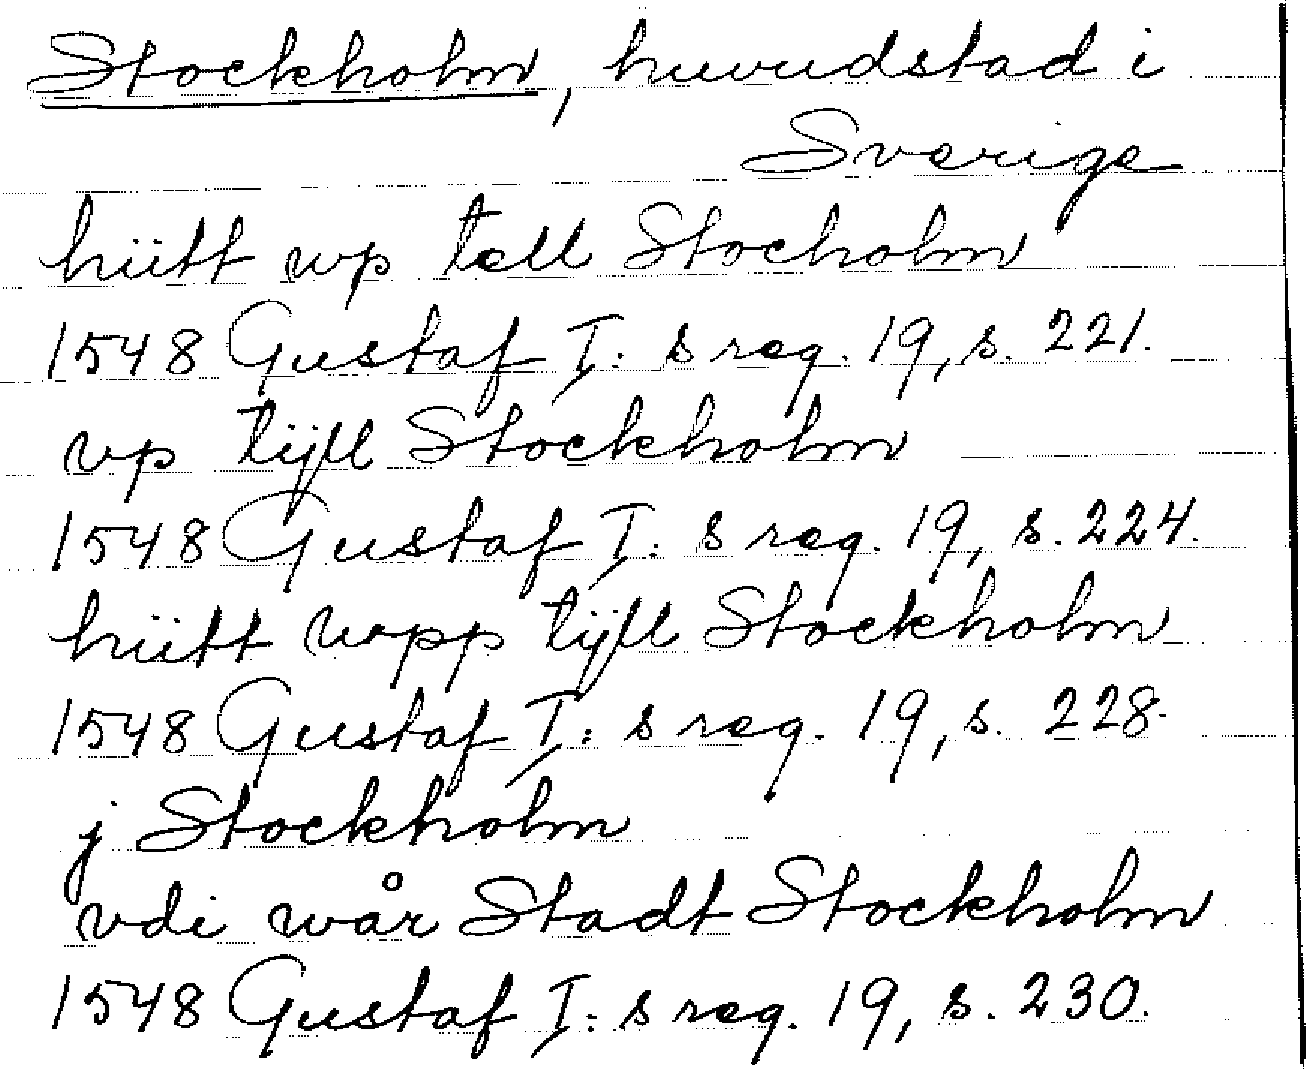 Stockholm, huvudstad i
Sverige
hiitt wp tell Stocholm
1548 Gustaf I:s reg. 19, s. 221.
vp tijll Stockholm
1548 Gustaf I:s reg. 19, s. 224.
hiitt wpp tijll Stockholm
1548 Gustaf I:s reg. 19, s. 228.
j Stockholm
vdi wår Stadt Stockholm
1548 Gustaf I:s reg. 19, s. 230.